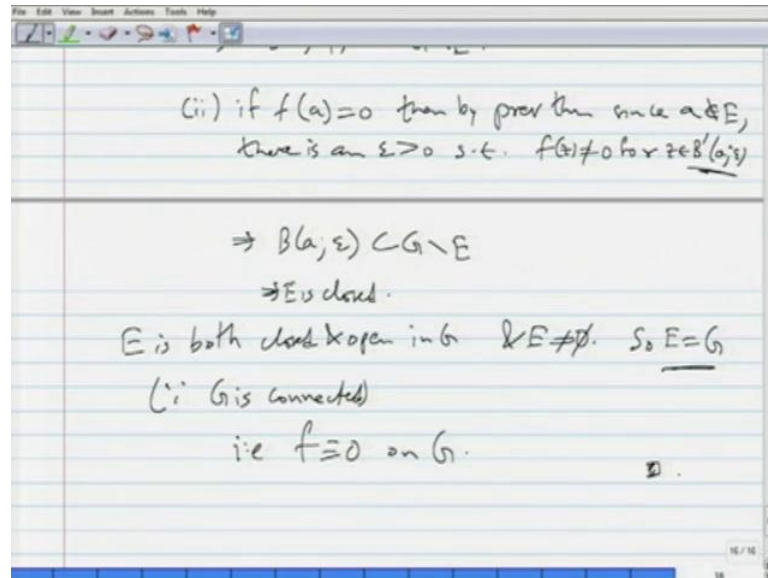 File Edit View Insert Actions Tools Help
(ii) if f(a)=0 then by prev thm since a∉E,
there is an ε>0 s.t. f(z)≠0 for z∈B'(a;ε)
⇒ B(a;ε) ⊂ G∖E
⇒ E is closed.
E is both closed & open in G & E≠∅. So E=G
(∵ G is connected)
i.e f≡0 on G.
16 / 16
16